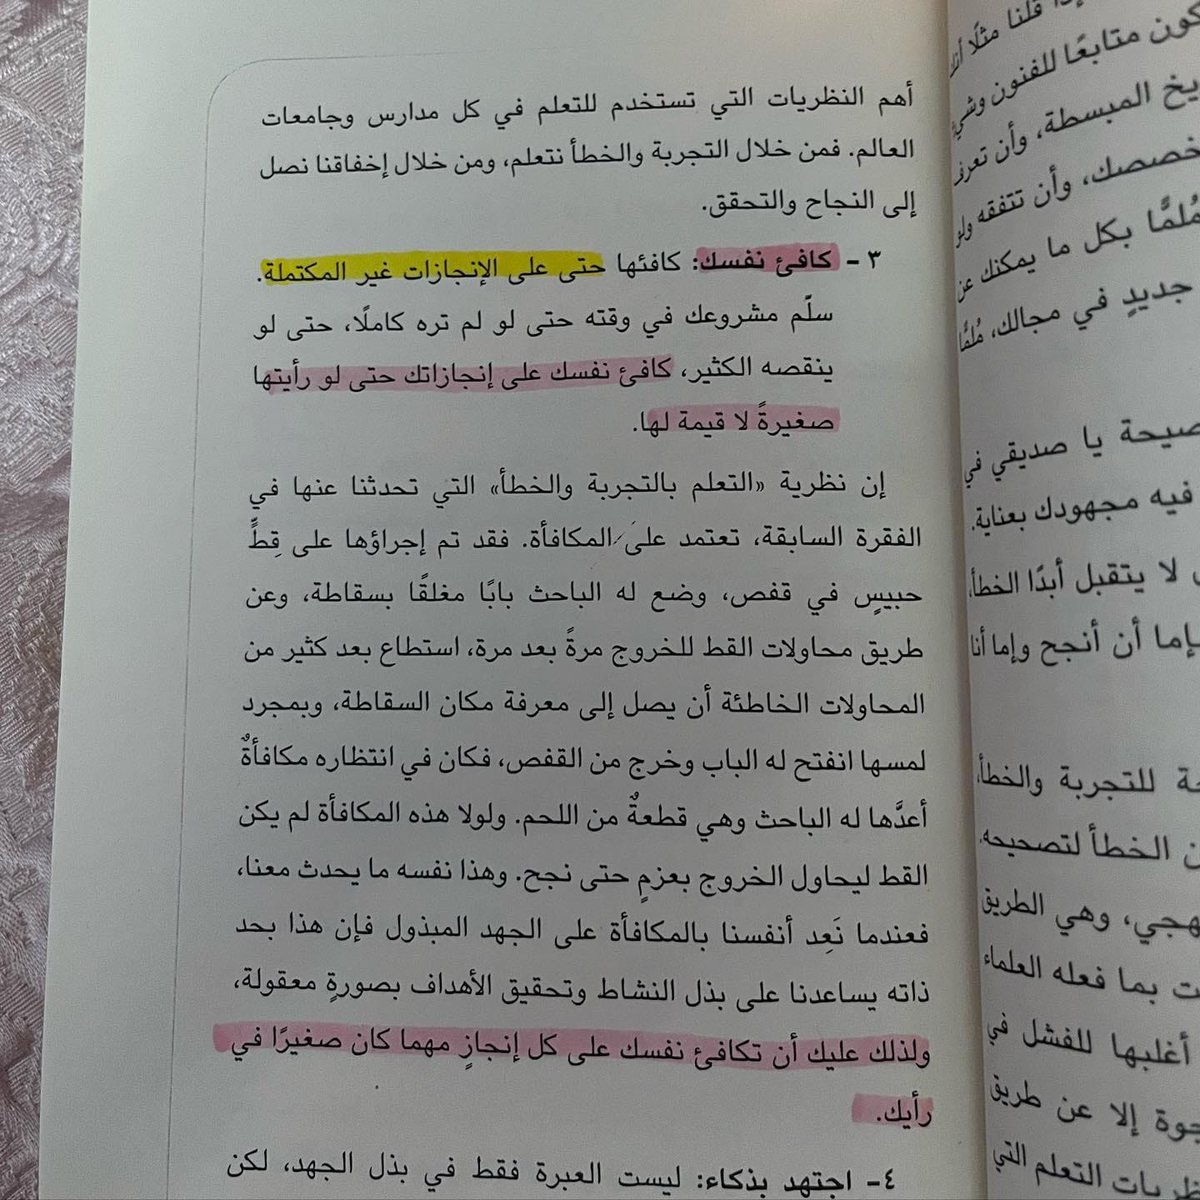 أهم النظريات التي تستخدم للتعلم في كل مدارس وجامعات
العالم. فمن خلال التجربة والخطأ نتعلم، ومن خلال إخفاقنا نصل
إلى النجاح والتحقق.
٣ - كافئ نفسك: كافئها حتى على الإنجازات غير المكتملة.
سلّم مشروعك في وقته حتى لو لم تره كاملًا، حتى لو
ينقصه الكثير، كافئ نفسك على إنجازاتك حتى لو رأيتها
صغيرةً لا قيمة لها.
إن نظرية «التعلم بالتجربة والخطأ» التي تحدثنا عنها في
الفقرة السابقة، تعتمد على المكافأة. فقد تم إجراؤها على قِطٍّ
حبيسٍ في قفص، وضع له الباحث بابًا مغلقًا بسقاطة، وعن
طريق محاولات القط للخروج مرةً بعد مرة، استطاع بعد كثير من
المحاولات الخاطئة أن يصل إلى معرفة مكان السقاطة، وبمجرد
لمسها انفتح له الباب وخرج من القفص، فكان في انتظاره مكافأةٌ
أعدَّها له الباحث وهي قطعةٌ من اللحم. ولولا هذه المكافأة لم يكن
القط ليحاول الخروج بعزمٍ حتى نجح. وهذا نفسه ما يحدث معنا،
فعندما نَعِد أنفسنا بالمكافأة على الجهد المبذول فإن هذا بحد
ذاته يساعدنا على بذل النشاط وتحقيق الأهداف بصورةٍ معقولة،
ولذلك عليك أن تكافئ نفسك على كل إنجازٍ مهما كان صغيرًا في
رأيك.
٤- اجتهد بذكاء: ليست العبرة فقط في بذل الجهد، لكن
قلنا مثلًا
متابعًا للفنون
المبسطة، وأن تعرف
وأن تتفقه ولو
مُلمًّا بكل ما يمكنك عن
جديدٍ في مجالك، مُلمًّا
يا صديقي في
فيه مجهودك بعناية.
لا يتقبل أبدًا الخطأ،
أن أنجح وإما أنا
للتجربة والخطأ،
الخطأ لتصحيحه.
وهي الطريق
بما فعله العلماء
أغلبها للفشل في
إلا عن طريق
التعلم التي